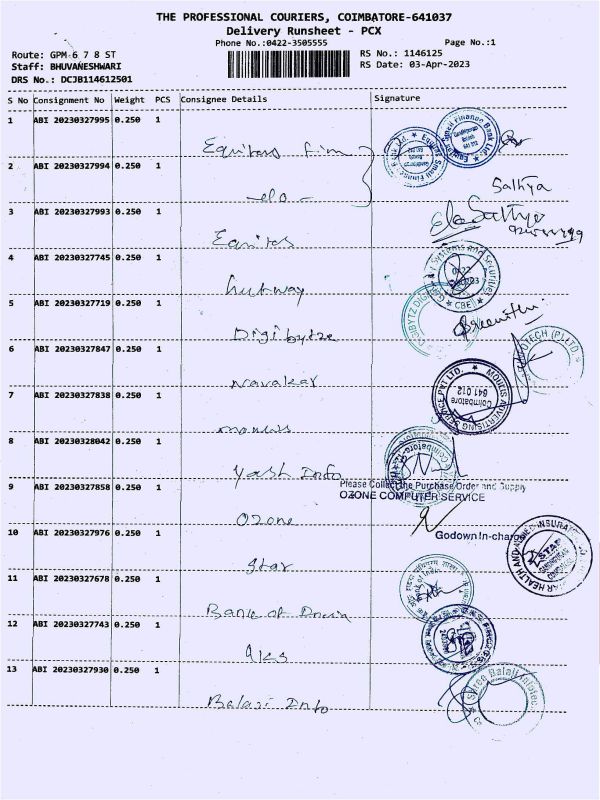 THE PROFESSIONAL COURIERS, COIMBATORE-641037
Delivery Runsheet - PCX
Phone No.:0422-3505555 Page No.:1
Route: GPM-6 7 8 ST RS No.: 1146125
Staff: BHUVANESHWARI RS Date: 03-Apr-2023
DRS No.: DCJB114612501
S No Consignment No Weight PCS Consignee Details Signature
1 ABI 20230327995 0.250 1
Equitas fin
2 ABI 20230327994 0.250 1
-do-
Sathya
3 ABI 20230327993 0.250 1
Equitas
Sathya
4 ABI 20230327745 0.250 1
5 ABI 20230327719 0.250 1
Digibytze
6 ABI 20230327847 0.250 1
Navakar
7 ABI 20230327838 0.250 1
MONUS ADVERTISING SERVICE PVT LTD.
Coimbatore
641 012
8 ABI 20230328042 0.250 1
Yash Info
Please Collect the Purchase Order and Supply
9 ABI 20230327858 0.250 1
OZONE COMPUTER SERVICE
Ozone
Godown In-charge
10 ABI 20230327976 0.250 1
Star
STAR
11 ABI 20230327678 0.250 1
Bank of India
12 ABI 20230327743 0.250 1
13 ABI 20230327930 0.250 1
Shree Balaji Infotec
Balaji Info